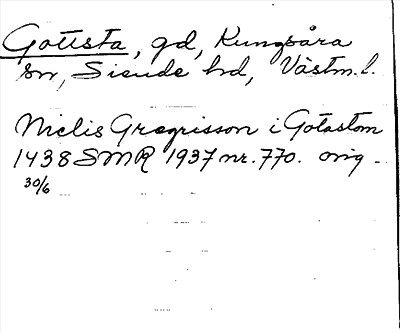 Gottsta, gd, Kungsåra
sn, Siende hd, Västm.l.
Nielis Gregrisson i Gotastom
1438 SMR 1937 nr. 770. orig.
30/6